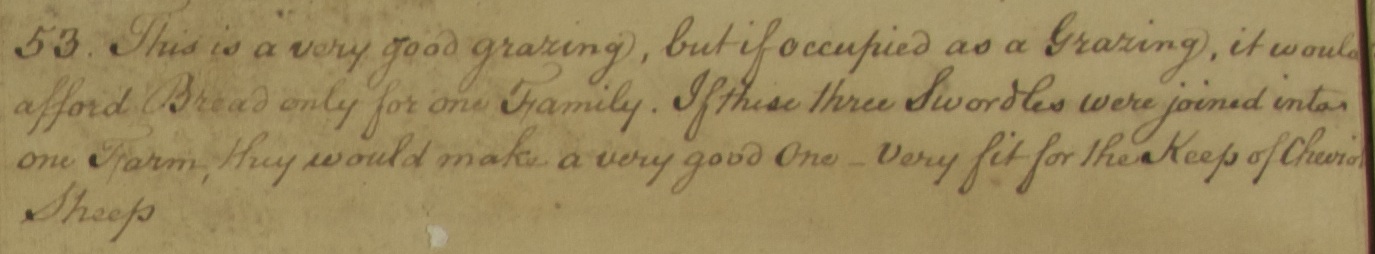 53. This is a very good grazing, but if occupied as a Grazing, it would
afford Bread only for one Family. If these three Swordles were joined into
one Farm, they would make a very good One - Very fit for the Keep of Cheviot
Sheep